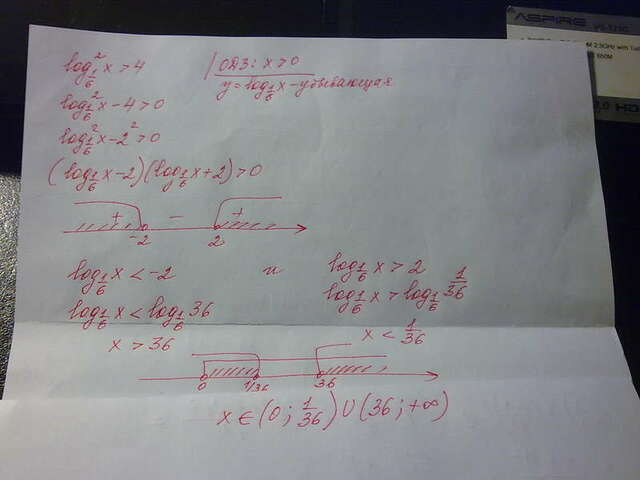 ASPIRE
log²_{1/6} x > 4
ОДЗ: x > 0
y = log_{1/6} x - убывающая
log²_{1/6} x - 4 > 0
log²_{1/6} x - 2² > 0
(log_{1/6} x - 2)(log_{1/6} x + 2) > 0
+ - +
-2 2
log_{1/6} x < -2 и log_{1/6} x > 2
log_{1/6} x < log_{1/6} 36 log_{1/6} x > log_{1/6} 1/36
x > 36 x < 1/36
0 1/36 36
x ∈ (0; 1/36) ∪ (36; +∞)